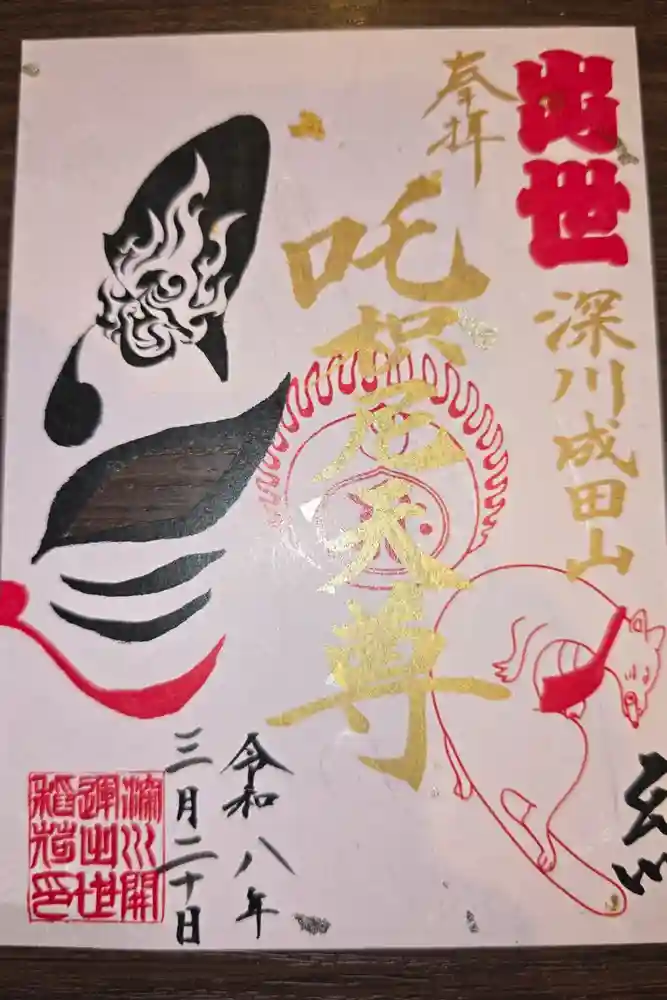 出世
深川成田山
奉拝
吒枳尼天尊
令和八年
三月二十日
深川開
運出世
稲荷印